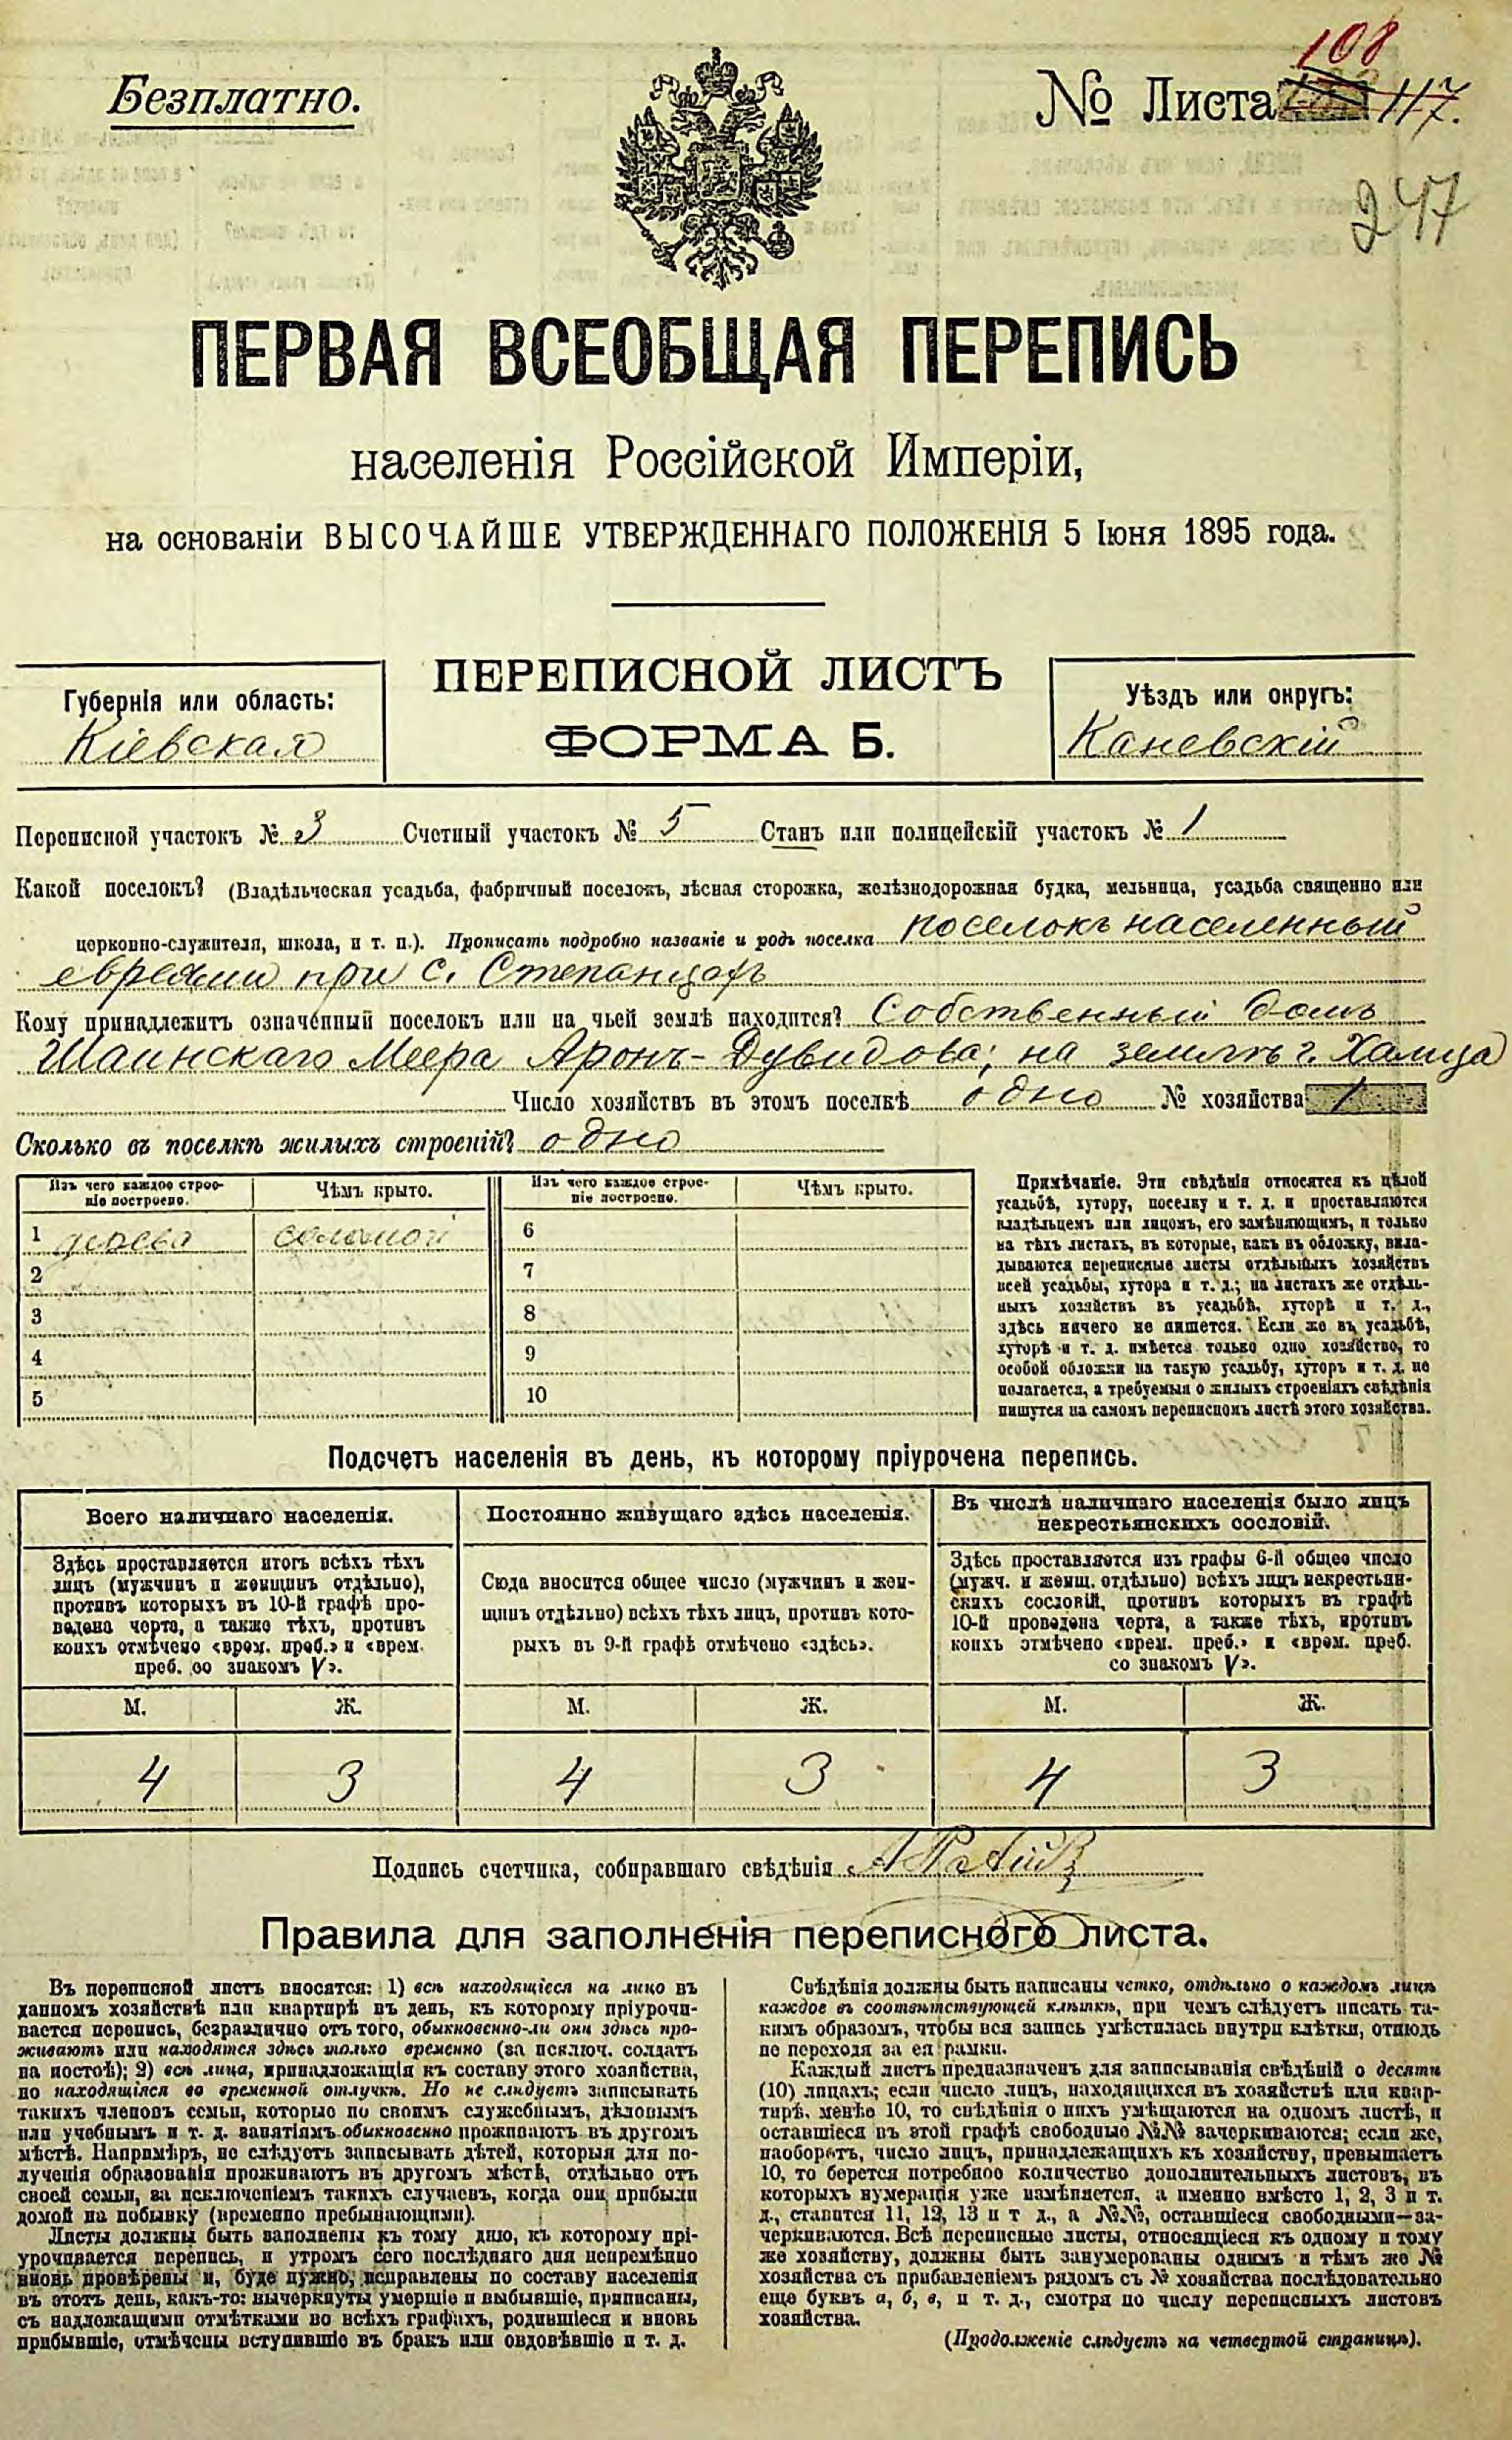 Безплатно.
№ Листа 108 117.
247
ПЕРВАЯ ВСЕОБЩАЯ ПЕРЕПИСЬ
населенія Россійской Имперіи,
на основаніи ВЫСОЧАЙШЕ УТВЕРЖДЕННАГО ПОЛОЖЕНІЯ 5 Іюня 1895 года.
Губернія или область:
Кіевская
ПЕРЕПИСНОЙ ЛИСТЪ
ФОРМА Б.
Уѣздъ или округъ:
Каневскій
Переписной участокъ № 3 Счетный участокъ № 5 Станъ или полицейскій участокъ № 1
Какой поселокъ? (Владѣльческая усадьба, фабричный поселокъ, лѣсная сторожка, желѣзнодорожная будка, мельница, усадьба священно или
церковно-служителя, школа, и т. п.). Прописать подробно названіе и родъ поселка поселокъ населенный
евреями при с. Степанцахъ
Кому принадлежитъ означенный поселокъ или на чьей землѣ находится? Собственный домъ
Шаинскаго Меера Аронъ-Дувидова; на землѣ г. Халица
Число хозяйствъ въ этомъ поселкѣ одно № хозяйства 1
Сколько въ поселкѣ жилыхъ строеній? одно
Изъ чего каждое строеніе построено.
Чѣмъ крыто.
Изъ чего каждое строеніе построено.
Чѣмъ крыто.
1 дерева соломой 6
2 7
3 8
4 9
5 10
Примѣчаніе. Эти свѣдѣнія относятся къ цѣлой
усадьбѣ, хутору, поселку и т. д. и проставляются
владѣльцемъ или лицомъ, его замѣняющимъ, и только
на тѣхъ листахъ, въ которые, какъ въ обложку, вкла-
дываются переписные листы отдѣльныхъ хозяйствъ
всей усадьбы, хутора и т. д.; на листахъ же отдѣль-
ныхъ хозяйствъ въ усадьбѣ, хуторѣ и т. д.,
здѣсь ничего не пишется. Если же въ усадьбѣ,
хуторѣ и т. д. имѣется только одно хозяйство, то
особой обложки на такую усадьбу, хуторъ и т. д. не
полагается, а требуемыя о жилыхъ строеніяхъ свѣдѣнія
пишутся на самомъ переписномъ листѣ этого хозяйства.
Подсчетъ населенія въ день, къ которому пріурочена перепись.
Всего наличнаго населенія.
Здѣсь проставляется итогъ всѣхъ тѣхъ
лицъ (мужчинъ и женщинъ отдѣльно),
противъ которыхъ въ 10-й графѣ про-
ведена черта, а также тѣхъ, противъ
коихъ отмѣчено «врем. преб.» и «врем.
преб. со знакомъ V».
Постоянно живущаго здѣсь населенія.
Сюда вносится общее число (мужчинъ и жен-
щинъ отдѣльно) всѣхъ тѣхъ лицъ, противъ кото-
рыхъ въ 9-й графѣ отмѣчено «здѣсь».
Въ числѣ наличнаго населенія было лицъ
некрестьянскихъ сословій.
Здѣсь проставляется изъ графы 6-й общее число
(мужч. и женщ. отдѣльно) всѣхъ лицъ некрестьян-
скихъ сословій, противъ которыхъ въ графѣ
10-й проведена черта, а также тѣхъ, противъ
коихъ отмѣчено «врем. преб.» и «врем. преб.
со знакомъ V».
М. Ж. М. Ж. М. Ж.
4 3 4 3 4 3
Подпись счетчика, собиравшаго свѣдѣнія
Правила для заполненія переписного листа.
Въ переписной листъ вносятся: 1) всѣ находящіеся на лицо въ
данномъ хозяйствѣ или квартирѣ въ день, къ которому пріурочи-
вается перепись, безразлично отъ того, обыкновенно-ли они здѣсь про-
живаютъ или находятся здѣсь только временно (за исключ. солдатъ
на постоѣ); 2) всѣ лица, принадлежащія къ составу этого хозяйства,
но находящіяся во временной отлучкѣ. Но не слѣдуетъ записывать
такихъ членовъ семьи, которые по своимъ служебнымъ, дѣловымъ
или учебнымъ и т. д. занятіямъ обыкновенно проживаютъ въ другомъ
мѣстѣ. Напримѣръ, не слѣдуетъ записывать дѣтей, которыя для по-
лученія образованія проживаютъ въ другомъ мѣстѣ, отдѣльно отъ
своей семьи, за исключеніемъ такихъ случаевъ, когда они прибыли
домой на побывку (временно пребывающими).
Листы должны быть заполнены къ тому дню, къ которому прі-
урочивается перепись, и утромъ сего послѣдняго дня непремѣнно
вновь провѣрены и, буде нужно, исправлены по составу населенія
въ этотъ день, какъ-то: вычеркнуты умершіе и выбывшіе, приписаны,
съ надлежащими отмѣтками во всѣхъ графахъ, родившіеся и вновь
прибывшіе, отмѣчены вступившіе въ бракъ или овдовѣвшіе и т. д.
Свѣдѣнія должны быть написаны четко, отдѣльно о каждомъ лицѣ
каждое въ соотвѣтствующей клѣткѣ, при чемъ слѣдуетъ писать та-
кимъ образомъ, чтобы вся запись умѣстилась внутри клѣтки, отнюдь
не переходя за ея рамки.
Каждый листъ предназначенъ для записыванія свѣдѣній о десяти
(10) лицахъ; если число лицъ, находящихся въ хозяйствѣ или квар-
тирѣ, менѣе 10, то свѣдѣнія о нихъ умѣщаются на одномъ листѣ, и
оставшіеся въ этой графѣ свободные №№ зачеркиваются; если же,
наоборотъ, число лицъ, принадлежащихъ къ хозяйству, превышаетъ
10, то берется потребное количество дополнительныхъ листовъ, въ
которыхъ нумерація уже измѣняется, а именно вмѣсто 1, 2, 3 и т.
д., ставится 11, 12, 13 и т д., а №№, оставшіеся свободными—за-
черкиваются. Всѣ переписные листы, относящіеся къ одному и тому
же хозяйству, должны быть занумерованы однимъ и тѣмъ же №
хозяйства съ прибавленіемъ рядомъ съ № хозяйства послѣдовательно
еще буквъ а, б, в, и т. д., смотря по числу переписныхъ листовъ
хозяйства.
(Продолженіе слѣдуетъ на четвертой страницѣ).